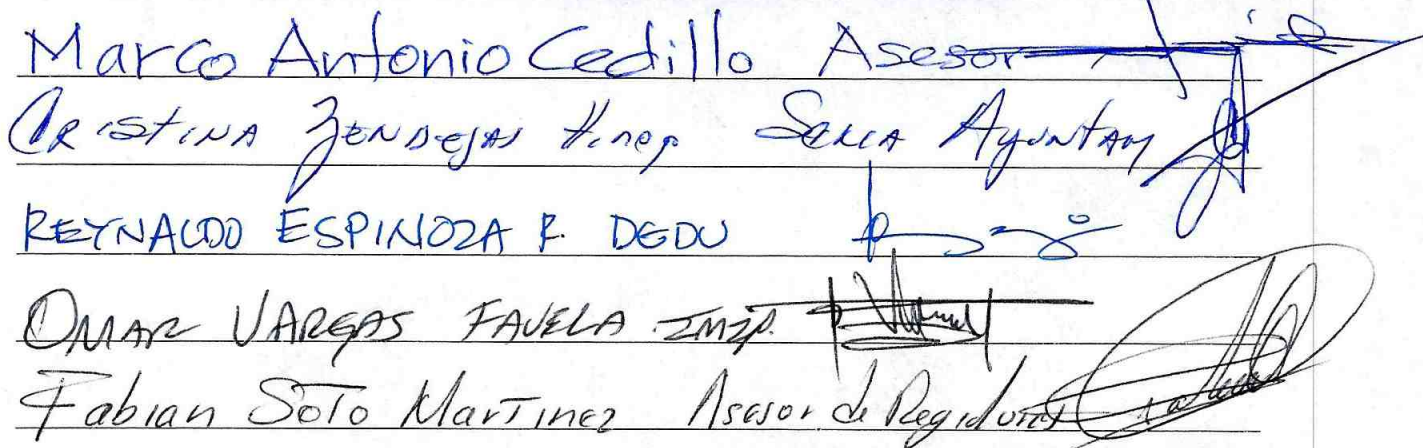 Marco Antonio Cedillo Asesor
CRISTINA ZENDEJAS SRIA AYUNTAM
REYNALDO ESPINOZA R. DEDU
OMAR VARGAS FAVELA IMIP.
Fabian Soto Martinez Asesor de Regidores